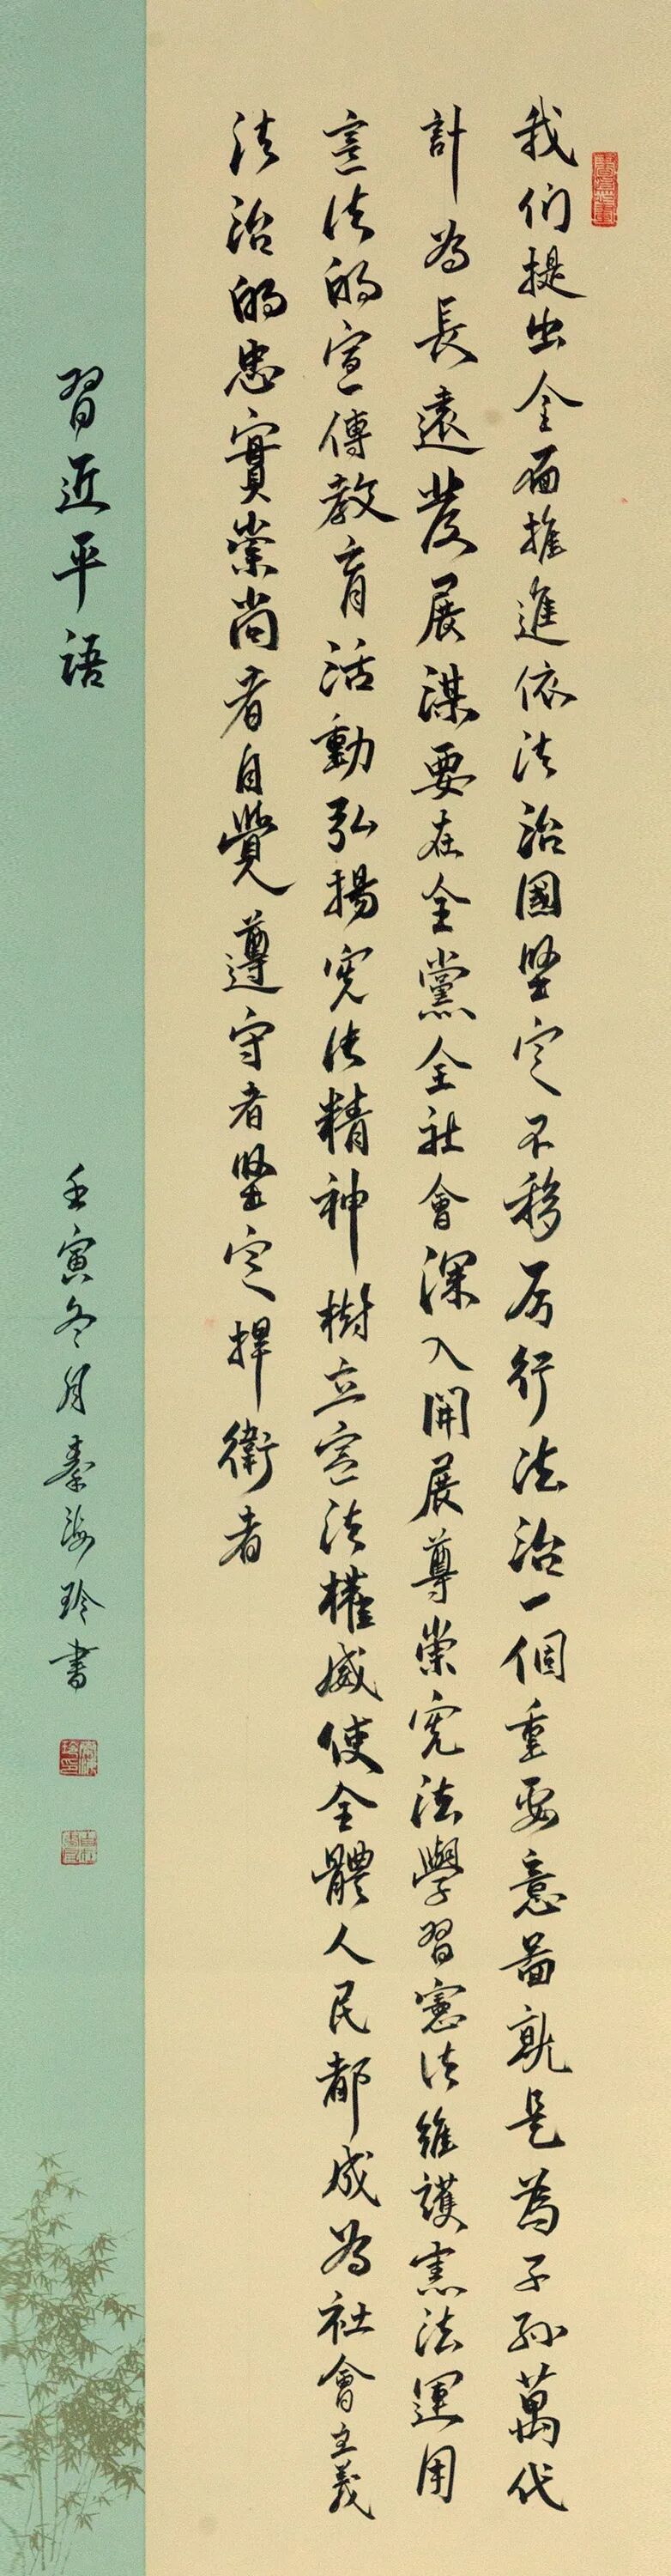 我们提出全面推進依法治國堅定不移厉行法治一個重要意啚就是為子孙萬代
計為長遠發展謀要在全黨全社會深入開展尊崇憲法學習憲法維護憲法運用
憲法的宣傳教育活動弘揚憲法精神樹立憲法權威使全體人民都成為社會主義
法治的忠實崇尚者自覺遵守者堅定捍衛者
習近平語
壬寅冬月秦海玲书